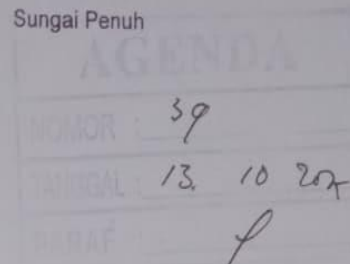 Sungai Penuh
AGENDA
NOMOR : 39
TANGGAL : 13. 10
PARAF :